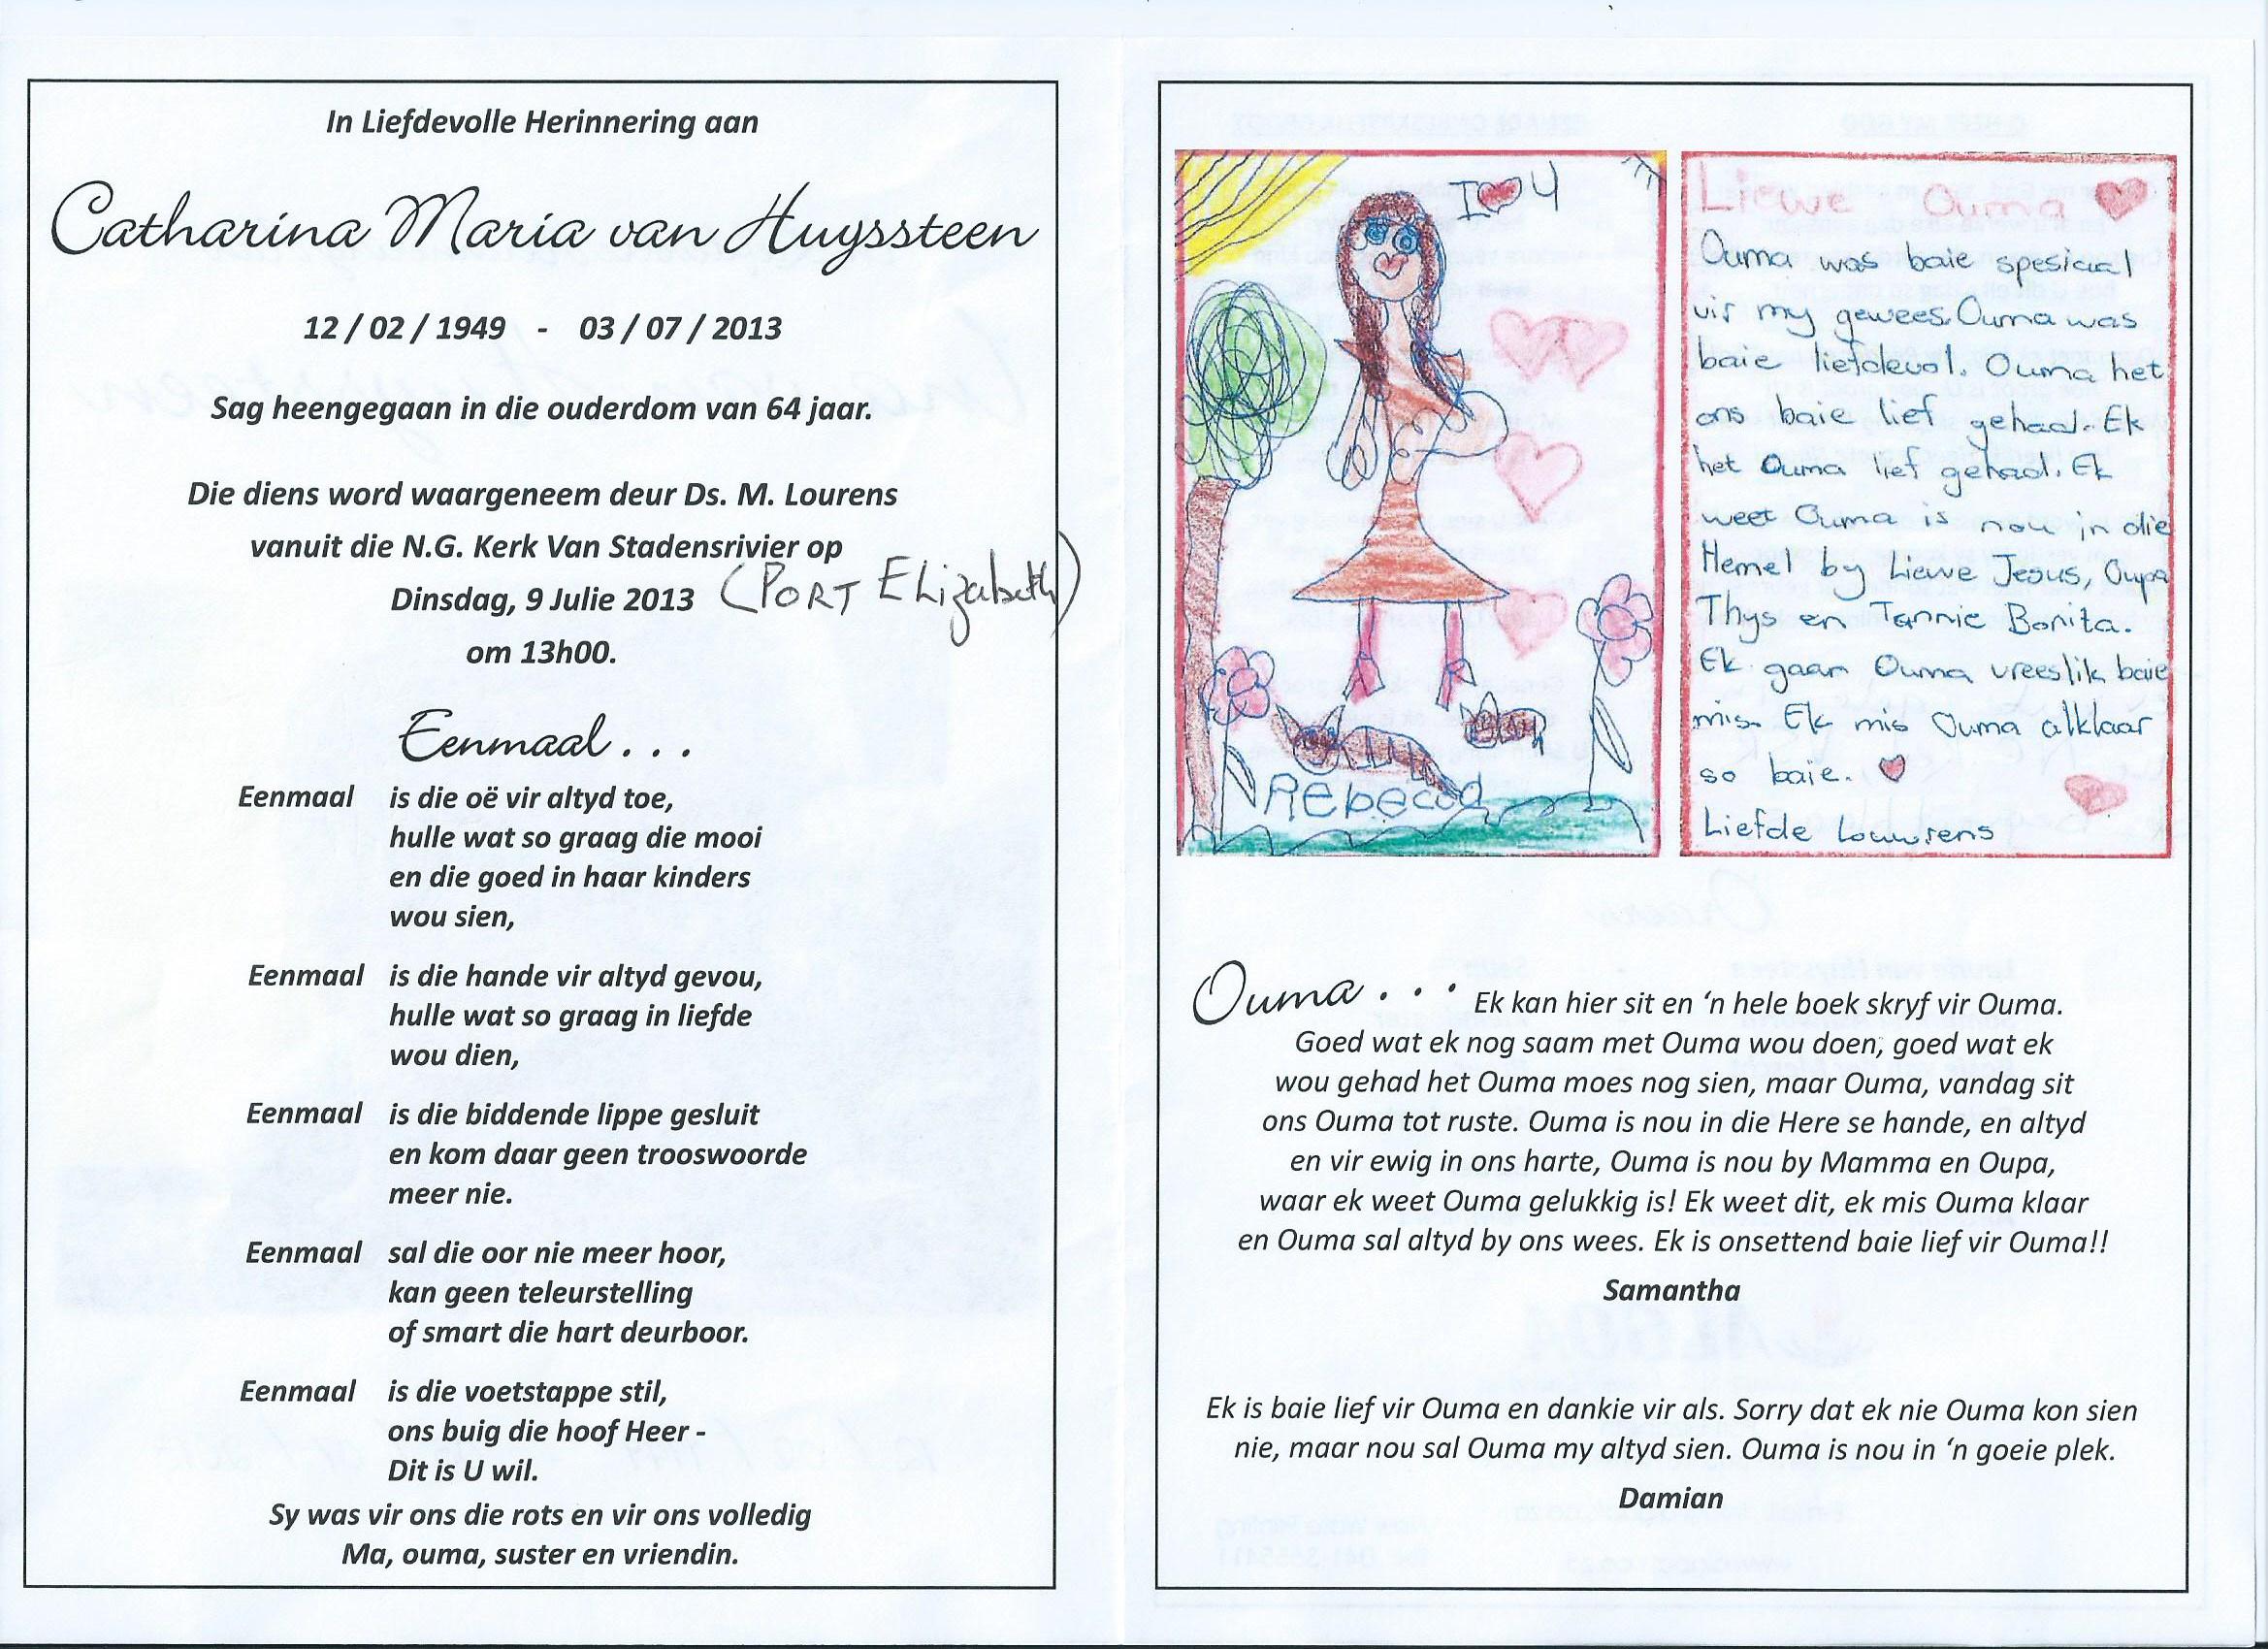 In Liefdevolle Herinnering aan
Catharina Maria van Huyssteen
12 / 02 / 1949 - 03 / 07 / 2013
Sag heengegaan in die ouderdom van 64 jaar.
Die diens word waargeneem deur Ds. M. Lourens
vanuit die N.G. Kerk Van Stadensrivier op
Dinsdag, 9 Julie 2013 (PORT Elizabeth)
om 13h00.
Eenmaal . . .
Eenmaal is die oë vir altyd toe,
hulle wat so graag die mooi
en die goed in haar kinders
wou sien,
Eenmaal is die hande vir altyd gevou,
hulle wat so graag in liefde
wou dien,
Eenmaal is die biddende lippe gesluit
en kom daar geen trooswoorde
meer nie.
Eenmaal sal die oor nie meer hoor,
kan geen teleurstelling
of smart die hart deurboor.
Eenmaal is die voetstappe stil,
ons buig die hoof Heer -
Dit is U wil.
Sy was vir ons die rots en vir ons volledig
Ma, ouma, suster en vriendin.
I ♥ U
Rebecca
Liewe Ouma
Ouma was baie spesiaal
vir my gewees. Ouma was
baie liefdevol. Ouma het
ons baie lief gehad. Ek
het Ouma lief gehad. Ek
weet Ouma is nou in die
Hemel by Liewe Jesus, Oupa
Thys en Tannie Bonita.
Ek gaan Ouma vreeslik baie
mis. Ek mis Ouma alklaar
so baie. ♥
Liefde Louwrens
Ouma . . . Ek kan hier sit en ‘n hele boek skryf vir Ouma.
Goed wat ek nog saam met Ouma wou doen, goed wat ek
wou gehad het Ouma moes nog sien, maar Ouma, vandag sit
ons Ouma tot ruste. Ouma is nou in die Here se hande, en altyd
en vir ewig in ons harte, Ouma is nou by Mamma en Oupa,
waar ek weet Ouma gelukkig is! Ek weet dit, ek mis Ouma klaar
en Ouma sal altyd by ons wees. Ek is onsettend baie lief vir Ouma!!
Samantha
Ek is baie lief vir Ouma en dankie vir als. Sorry dat ek nie Ouma kon sien
nie, maar nou sal Ouma my altyd sien. Ouma is nou in ‘n goeie plek.
Damian